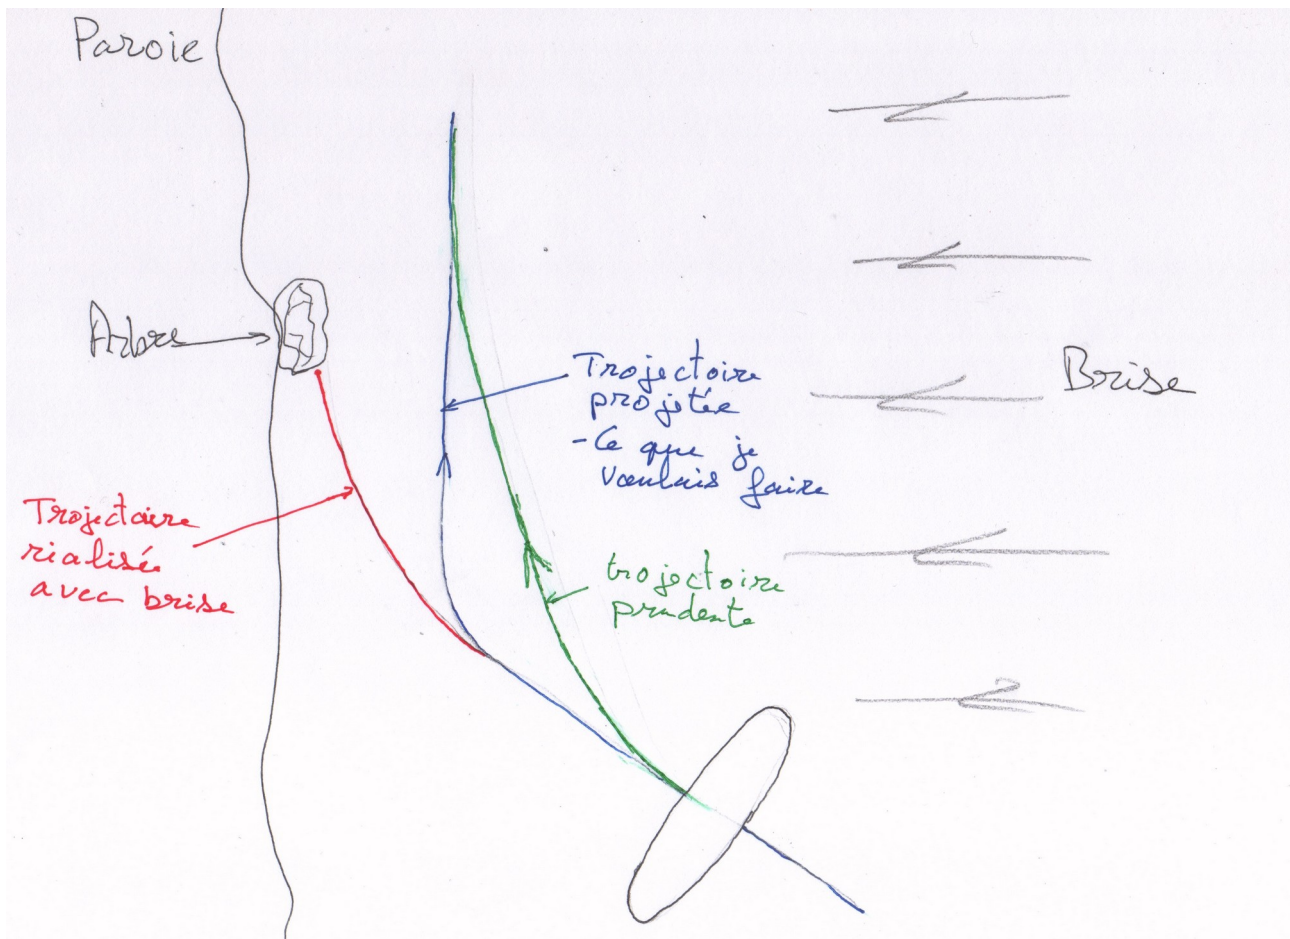 Paroie
Arbre
Brise
Trajectoire
projetée
- Ce que je
voulais faire
Trajectoire
rialisée
avec brise
trajectoire
prudente